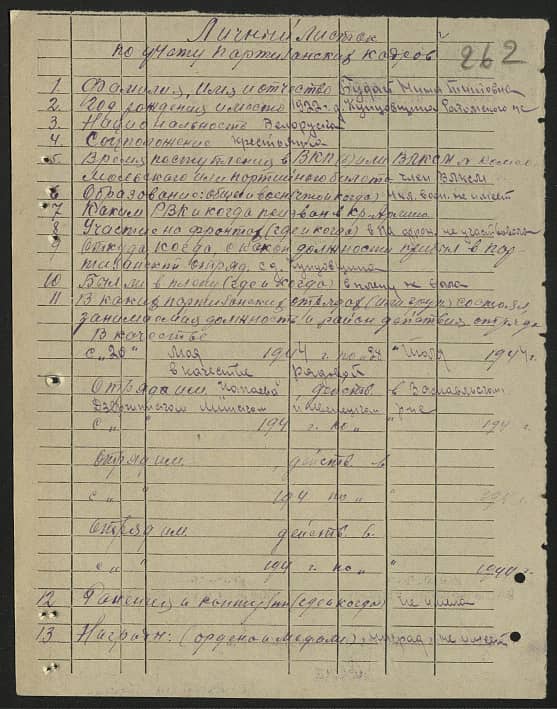 Личный Листок
по учёту Партизанских кадров
262
1. Фамилия, Имя и отчество Будай Нина
2. Год рождения и место 1922 г. д. Купцовщина
3. Национальность Белоруска
4. Соцположение крестьянка
5 Время поступления в ВКП(б) или ВЛКСМ №
или партийного билета член ВЛКСМ
6 Образование: общее и воен (что и когда) воен. не имеет
7 Каким РВК и когда призван в Кр. Армию
8 Участие на фронтах (где и когда) в На фрон. не участвовала
9 Откуда, когда, с какой должности прибыл в пар
тизанский отряд с д. Купцовщина
10 Был ли в плену (где и когда) в плену не была
11 В каких партизанских отрядах (или груп) состоял,
занимаемая должность и район действия отряда
В качестве
с "20" Мая 1944 г. по " " Июля 1944 г.
в качестве рядовой
Отряд им. Чапаева действ. в Заславльском
Дзержинском Минском и р-не
с " " 194 г. по " " 194 г.
Отряд им. действ. в
с " " 194 по " " 194 г.
Отряд им. действ. в.
с " " 194 г. по " " 1944 г.
12 Ранения и контузии (где и когда) не имела
13 Награжд.: (орденом и медалью) наград не имеет